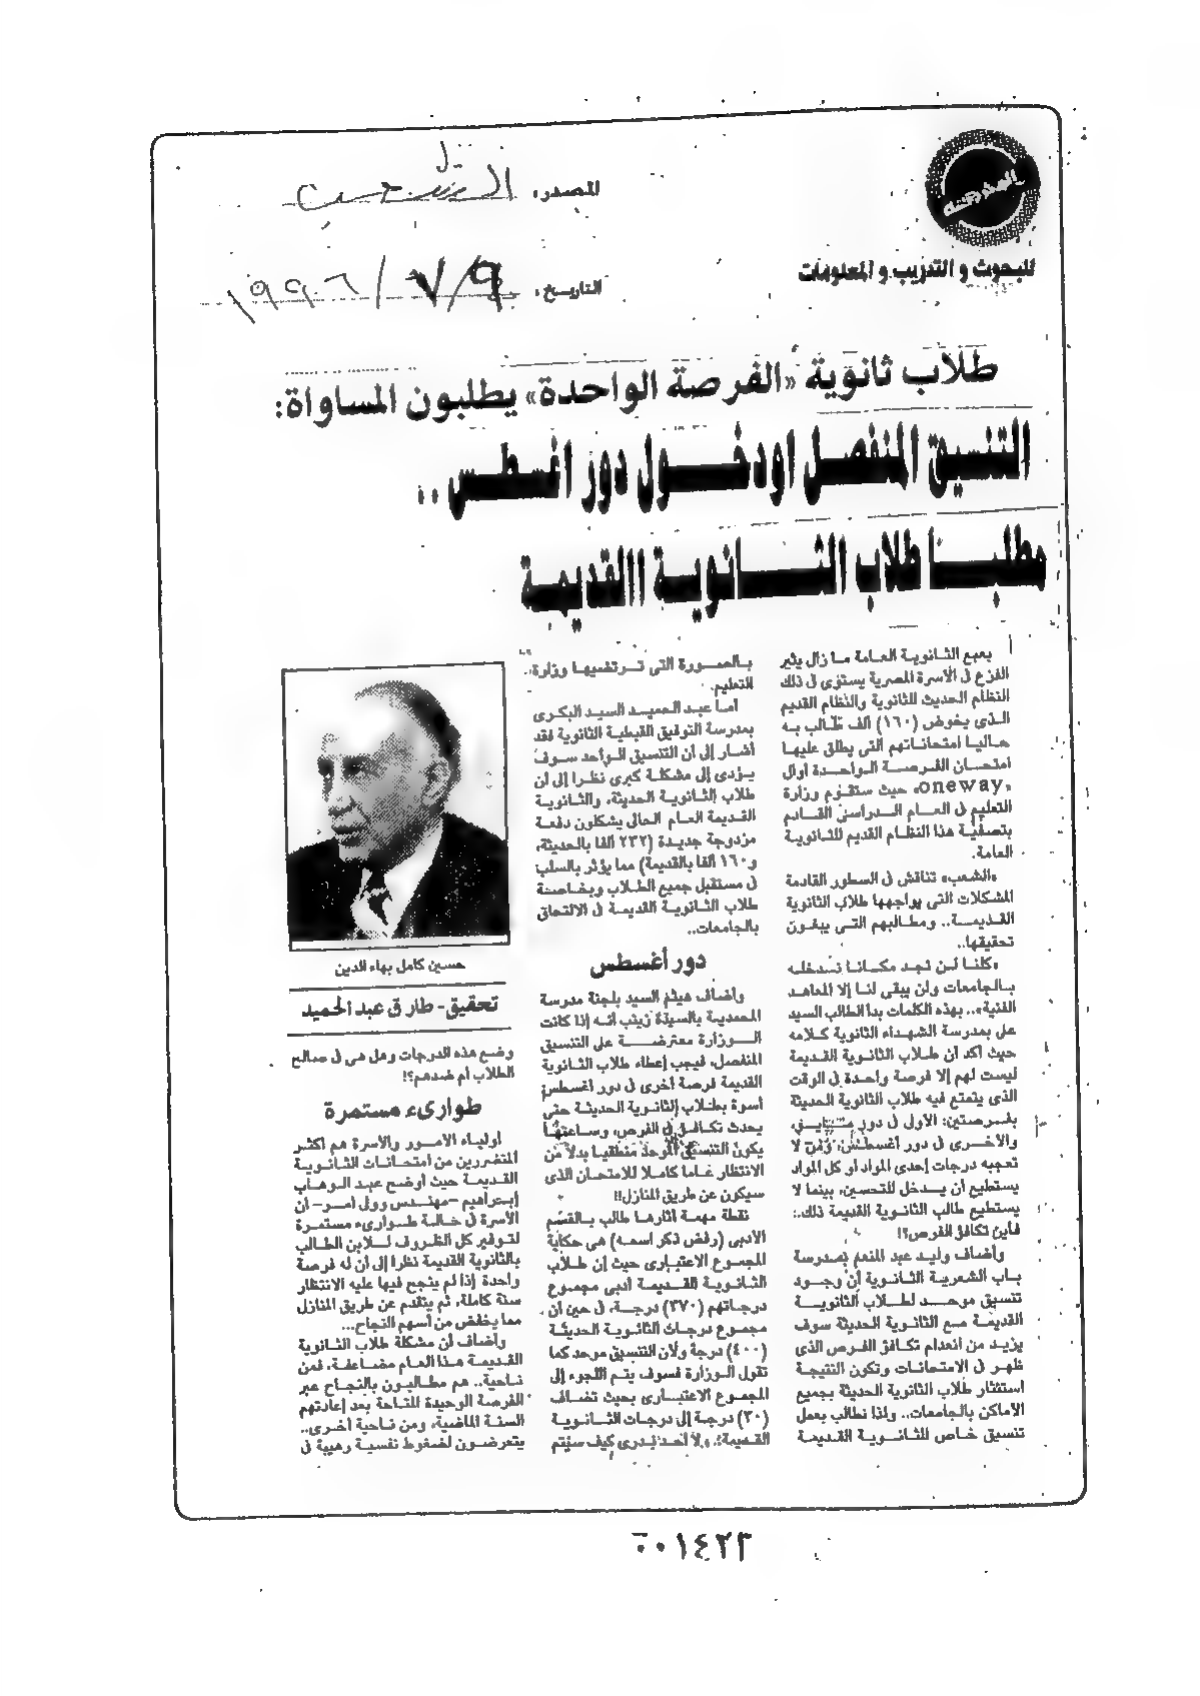 المصدر: الشعب
للبحوث و التدريب و المعلومات
التاريخ: ٩/٧/١٩٩٦
طلاب ثانوية «الفرصة الواحدة» يطلبون المساواة:
التنسيق المنفصل اودخول دور اغسطس ..
مطلبنا طلاب الثانوية االقديمة
بعبع الثانوية العامة مازال يثير
الفزع فى الأسرة المصرية يستوى فى ذلك
النظام الحديث للثانوية والنظام القديم
الذى يخوض (١٦٠) ألف طالب به
حاليا امتحاناتهم التى يطلق عليها
امتحان الفرصة الواحدة أوال
«oneway» حيث ستقوم وزارة
التعليم فى العام الدراسى القادم
بتصفية هذا النظام القديم للثانوية
العامة.
«الشعب» تناقش فى السطور القادمة
المشكلات التى يواجهها طلاب الثانوية
القديمة.. ومطالبهم التى يبغون
تحقيقها..
«كلنا لن نجد مكانا ندخله
بالجامعات ولن يبقى لنا إلا المعاهد
الفنية».. بهذه الكلمات بدأ الطالب السيد
على بمدرسة الشهداء الثانوية كلامه
حيث أكد أن طلاب الثانوية القديمة
ليست لهم إلا فرصة واحدة فى الوقت
الذى يتمتع فيه طلاب الثانوية الحديثة
بفرصتين: الأولى فى دور
والأخرى فى دور أغسطس، ومن لا
تعجبه درجات إحدى المواد أو كل المواد
يستطيع أن يدخل للتحسين، بينما لا
يستطيع طالب الثانوية القديمة ذلك.
فأين تكافؤ الفرص؟!
وأضاف وليد عبد المنعم بمدرسة
باب الشعرية الثانوية أن وجود
تنسيق موحد لطلاب الثانوية
القديمة مع الثانوية الحديثة سوف
يزيد من انعدام تكافؤ الفرص الذى
ظهر فى الامتحانات وتكون النتيجة
استئثار طلاب الثانوية الحديثة بجميع
الأماكن بالجامعات.. ولذا نطالب بعمل
تنسيق خاص للثانوية القديمة
بالصورة التى ترتضيها وزارة
التعليم.
أما عبد الحميد السيد البكرى
بمدرسة التوفيق القبطية الثانوية فقد
أشار إلى أن التنسيق الواحد سوف
يؤدى إلى مشكلة كبرى نظرا إلى أن
طلاب الثانوية الحديثة، والثانوية
القديمة العام الحالى يشكلون دفعة
مزدوجة جديدة (٢٣٢ ألفا بالحديثة،
و١٦٠ ألفا بالقديمة) مما يؤثر بالسلب
فى مستقبل جميع الطلاب وبخاصة
طلاب الثانوية القديمة فى الالتحاق
بالجامعات..
دور أغسطس
وأضاف هيثم السيد بلجنة مدرسة
المحمدية بالسيدة زينب أنه إذا كانت
الوزارة معترضة على التنسيق
المنفصل، فيجب إعطاء طلاب الثانوية
القديمة فرصة أخرى فى دور أغسطس
أسوة بطلاب الثانوية الحديثة حتى
يحدث تكافؤ فى الفرص، وساعتها
يكون التنسيق الموحد منطقيا بدلا من
الانتظار عاما كاملا للامتحان الذى
سيكون عن طريق المنازل!!
نقطة مهمة أثارها طالب بالقسم
الأدبى (رفض ذكر اسمه) هى حكاية
المجموع الاعتبارى حيث إن طلاب
الثانوية القديمة أدبى مجموع
درجاتهم (٣٧٠) درجة، فى حين أن
مجموع درجات الثانوية الحديثة
(٤٠٠) درجة ولأن التنسيق موحد كما
تقول الوزارة فسوف يتم اللجوء إلى
المجموع الاعتبارى بحيث تضاف
(٣٠) درجة إلى درجات الثانوية
القديمة؛ ولا أحد يدرى كيف سيتم
حسين كامل بهاء الدين
تحقيق- طارق عبد الحميد
وضع هذه الدرجات وهل هى فى صالح
الطلاب أم ضدهم؟!
طوارىء مستمرة
أولياء الأمور والأسرة هم أكثر
المتضررين من امتحانات الثانوية
القديمة حيث أوضح عبد الوهاب
إبراهيم -مهندس وولى أمر- أن
الأسرة فى حالة طوارىء مستمرة
لتوفير كل الظروف للابن الطالب
بالثانوية القديمة نظرا إلى أن له فرصة
واحدة إذا لم ينجح فيها عليه الانتظار
سنة كاملة، ثم يتقدم عن طريق المنازل
مما يخفض من أسهم النجاح...
وأضاف أن مشكلة طلاب الثانوية
القديمة هذا العام مضاعفة، فمن
ناحية.. هم مطالبون بالنجاح عبر
الفرصة الوحيدة المتاحة بعد إعادتهم
السنة الماضية، ومن ناحية أخرى..
يتعرضون لضغوط نفسية رهيبة فى